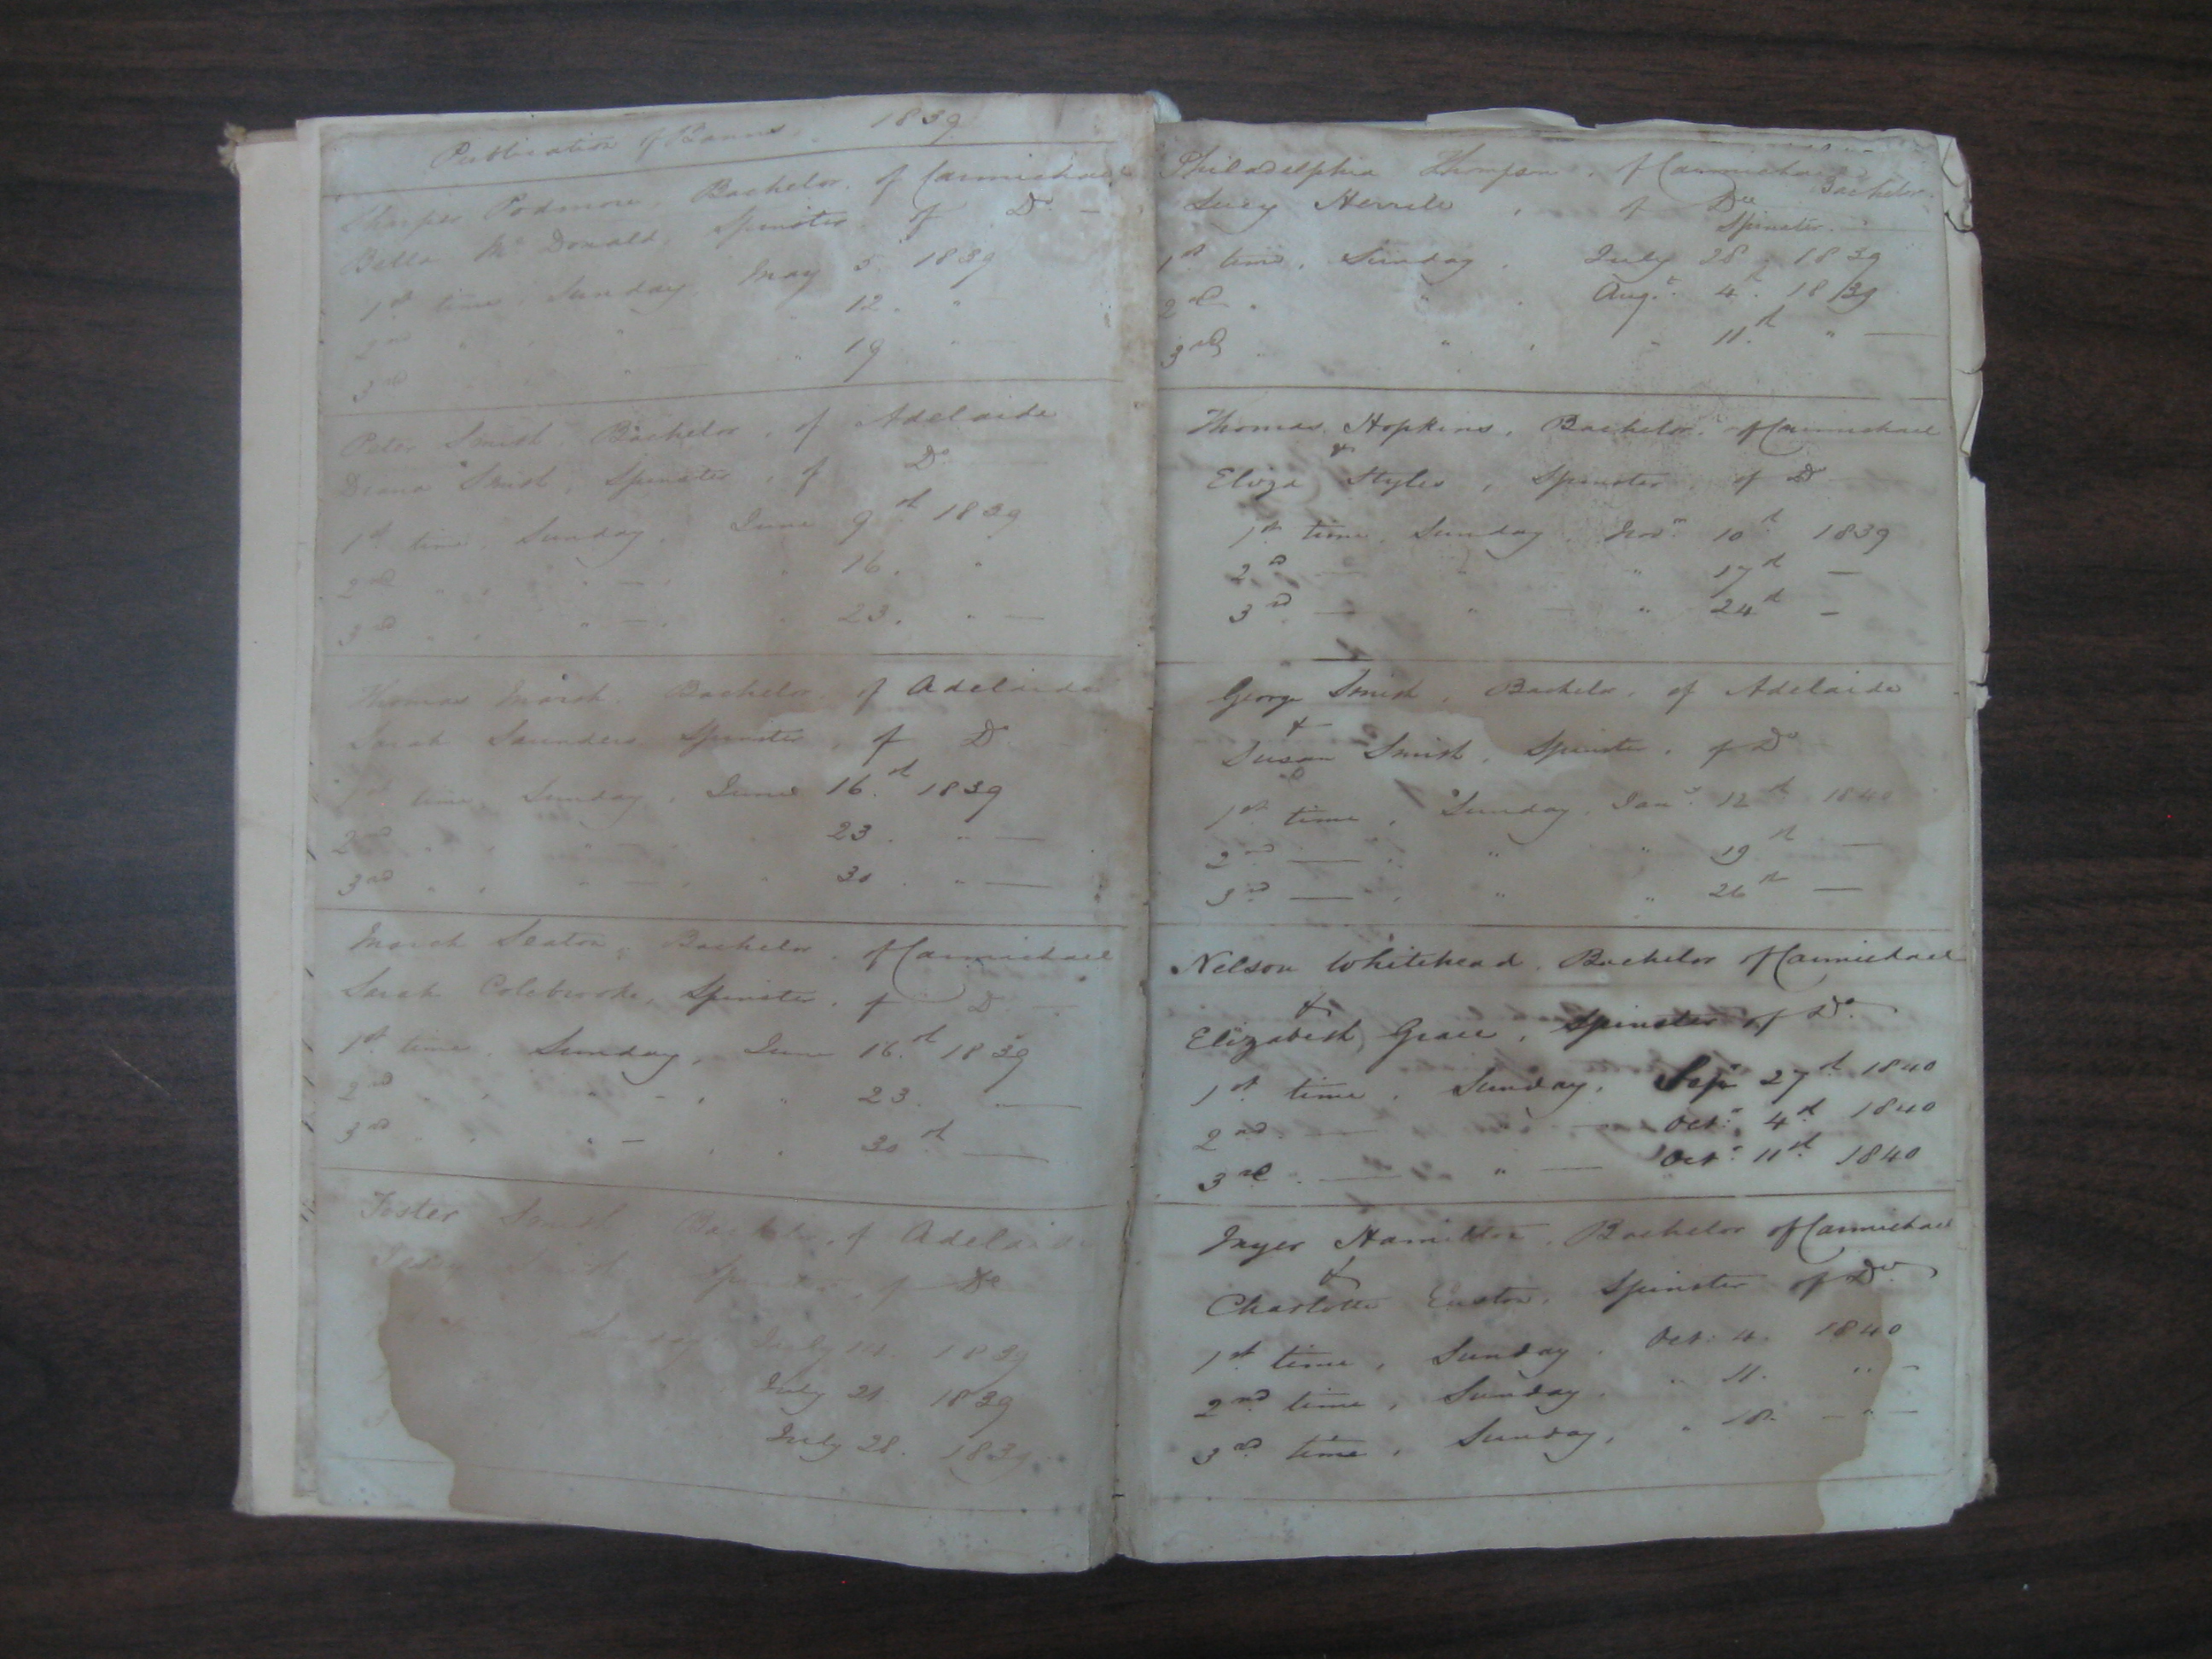 Publication of Banns. 1839
Sharper Podmore, Bachelor, of Carmichael
Bella Mc Donald, Spinster of Do —
1st time, Sunday, May 5. 1839
2nd " " " 12. "
3rd " " " 19 "
Peter Smith, Bachelor, of Adelaide
Diana Smith, Spinster, of Do
1st time, Sunday, June 9th 1839
2nd " " — " 16. "
3rd " " — " 23. " —
Thomas March, Bachelor, of Adelaide
Sarah Saunders Spinster, of Do
1st time, Sunday, June 16th 1839
2nd " " — 23. " —
3rd " " — " 30. " —
March Seaton, Bachelor, of Carmichael
Sarah Colebrooke, Spinster, of Do —
1st time, Sunday, June 16th 1839
2nd " " - " 23. —
3rd " " — " 30th —
Foster Smith Bachelor, of Adelaide
Smith Spinster, of Do
Sunday July 14. 1839
July 21. 1839
July 28. 1839
Philadelphia Thompson, of Carmichael Bachelor.
Lucy , of Do Spinster.
1st time, Sunday, July 28, 1839
2nd " " Augt. 4th 1839
3rd " " " 11th " —
Thomas Hopkins, Bachelor, of Carmichael
&
Eliza Styles, Spinster, of Do
1st time, Sunday, Novr. 10th 1839
2d — " — " 17th —
3rd — " — " 24th —
George Smith, Bachelor, of Adelaide
&
Susan Smith, Spinster, of Do
1st time, Sunday, Jany. 12th 1840
2nd — " " 19th —
3rd — " " 26th —
Nelson Whitehead, Bachelor of Carmichael
&
Elizabeth Grace, Spinster of Do.
1st time, Sunday, Sepr 27th 1840
2nd. — " — Octr. 4th 1840
3rd. — " — Octr. 11th 1840
Hamilton, Bachelor of Carmichael
&
Charlotte Euston, Spinster of Do.
1st time, Sunday, Oct. 4. 1840
2nd time, Sunday, " 11. " -
3rd time, Sunday, " 18. — " —